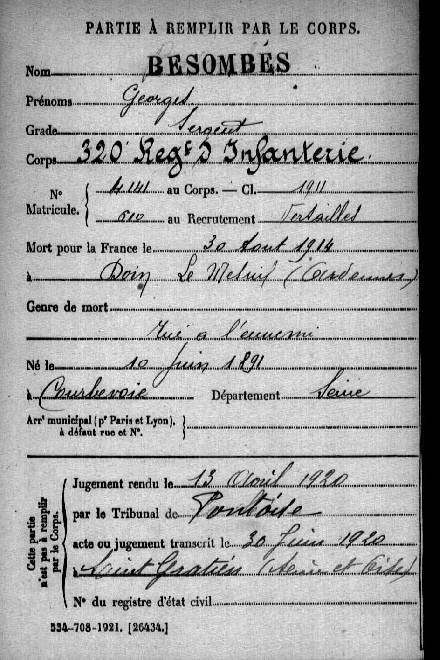 PARTIE À REMPLIR PAR LE CORPS.
Nom BESOMBES
Prénoms Georges
Grade Sergent
Corps 320e Regt D'Infanterie.
N° Matricule. { 4141 au Corps. — Cl. 1911
610 au Recrutement Versailles
Mort pour la France le 30 Aout 1914
à Le Mesnil (Ardennes)
Genre de mort
Tué a l'ennemi
Né le 10 Juin 1891
à Courbevoie Département Seine
Arrt municipal (pr Paris et Lyon), à défaut rue et N°. }
Cette partie n'est pas à remplir par le Corps. {
Jugement rendu le 13 Avril 1920
par le Tribunal de Pontoise
acte ou jugement transcrit le 30 Juin 1920
à Saint Gratien (Seine et Oise)
N° du registre d'état civil
534-708-1921. [26434.]